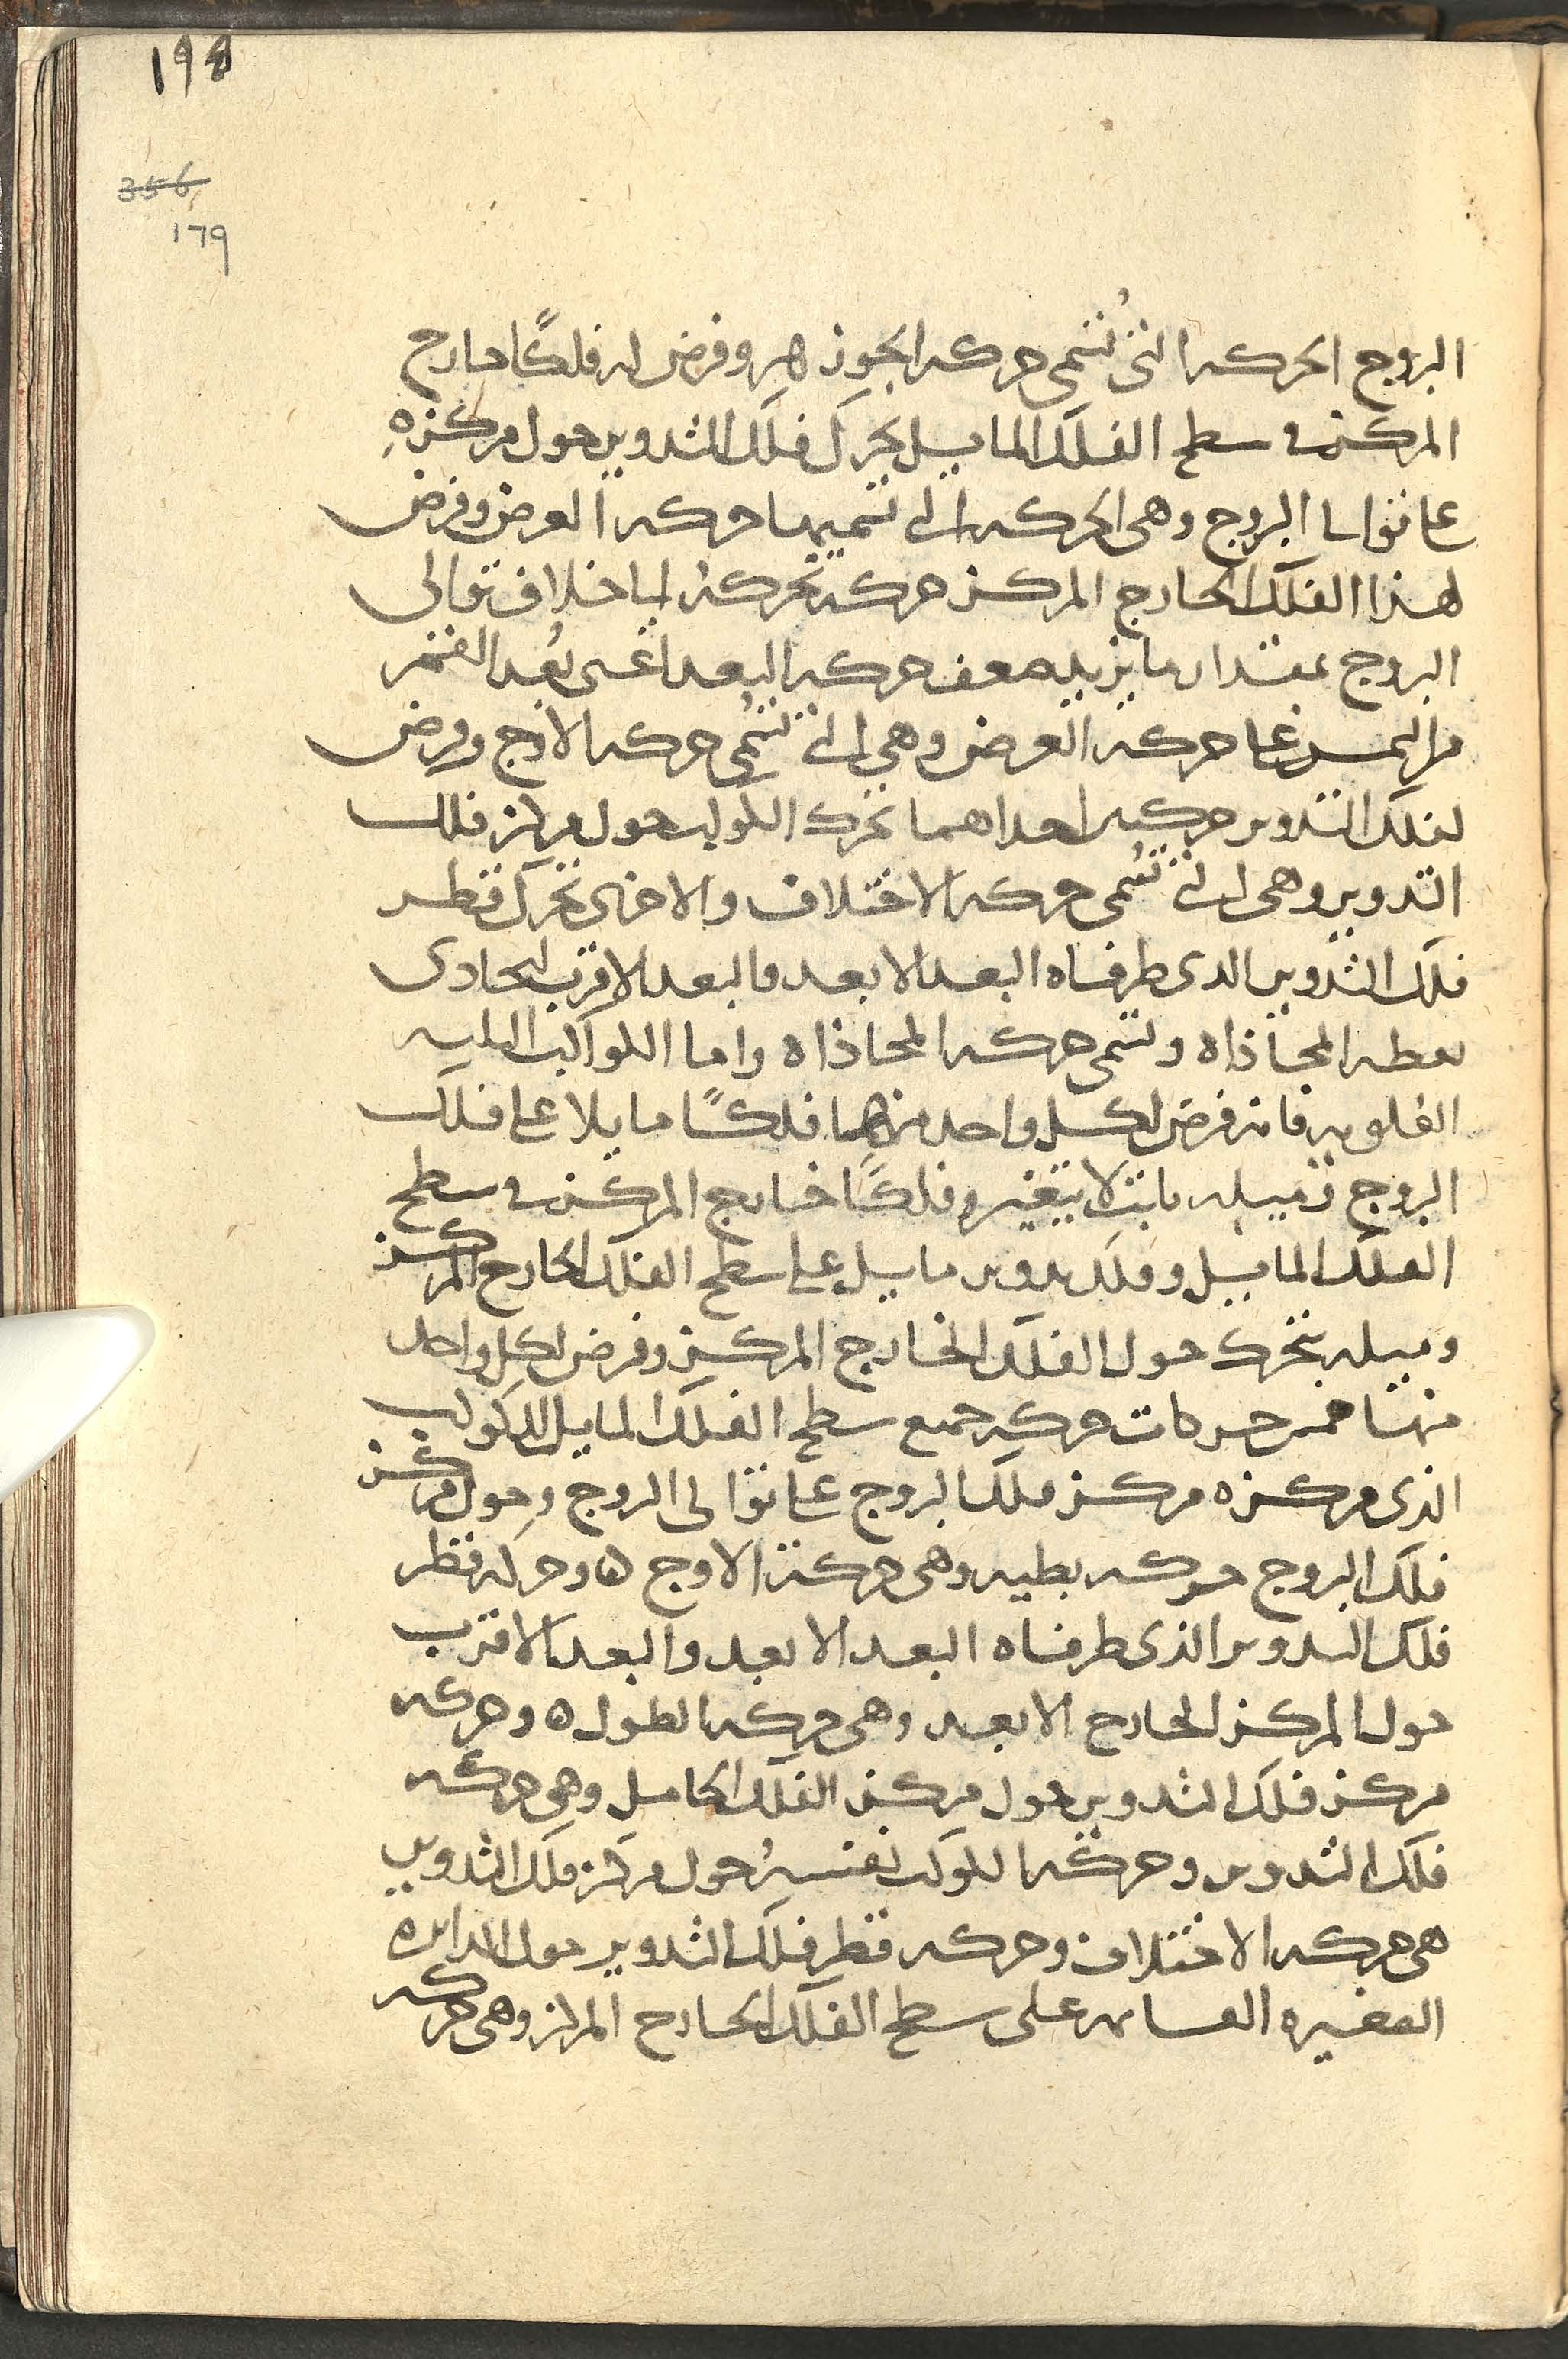 198
356
179
البروج الحركه التى تُسمى حركه الجوزهر وفرض له فلكًا خارج
المركز فى سطح الفلك المايل يحرك فلك التدوير حول مركزهِ
على توالى البروج وهى الحركه التى نسميها حركه العرض وفرض
لهذا الفلك الخارج المركز حركه تحركهُ الى خلاف توالى
البروج بمقدار ما يزيد ضعف حركه البعد اعنى بُعد القمر
من الشمس على حركه العرض وهى التى تُسمى حركه الاوج وفرض
لفلك التدوير حركتين احداهما تحرك الكوكب حول مركز فلك
التدوير وهى التى تُسمى حركه الاختلاف والاخرى تحرك قطر
فلك التدوير الذى طرفاه البعد الابعد والبعد الاقرب ليحاذى
نقطه المحاذاه وتسمى حركه المحاذاه واما الكواكب الثلثه
العلويه فانه فرض لكل واحد منها فلكًا مايلا على فلك
البروج وميله ثابت لا يتغير وفلكًا خارج المركز فى سطح
الفلك المايل وفلك تدوير مايل على سطح الفلك الخارج المركز
وميله يتحرك حول الفلك الخارج المركز وفرض لكل واحد
منها خمس حركات حركه جميع سطح الفلك المايل للكوكب
الذى مركزه مركز فلك البروج على توالى البروج وحول مركز
فلك البروج حركه بطيه وهى حركة الاوج ه وحركه قطر
فلك التدوير الذى طرفاه البعد الابعد والبعد الاقرب
حول المركز الخارج الابعد وهى حركه الطول ه وحركه
مركز فلك التدوير حول مركز الفلك الحامل وهى حركه
فلك التدوير وحركه الكوكب نفسهُ حول مركز فلك التدوير
هى حركه الاختلاف وحركه قطر فلك التدوير حول الدايره
الصغيره القايمه على سطح الفلك الخارج المركز وهى حركه